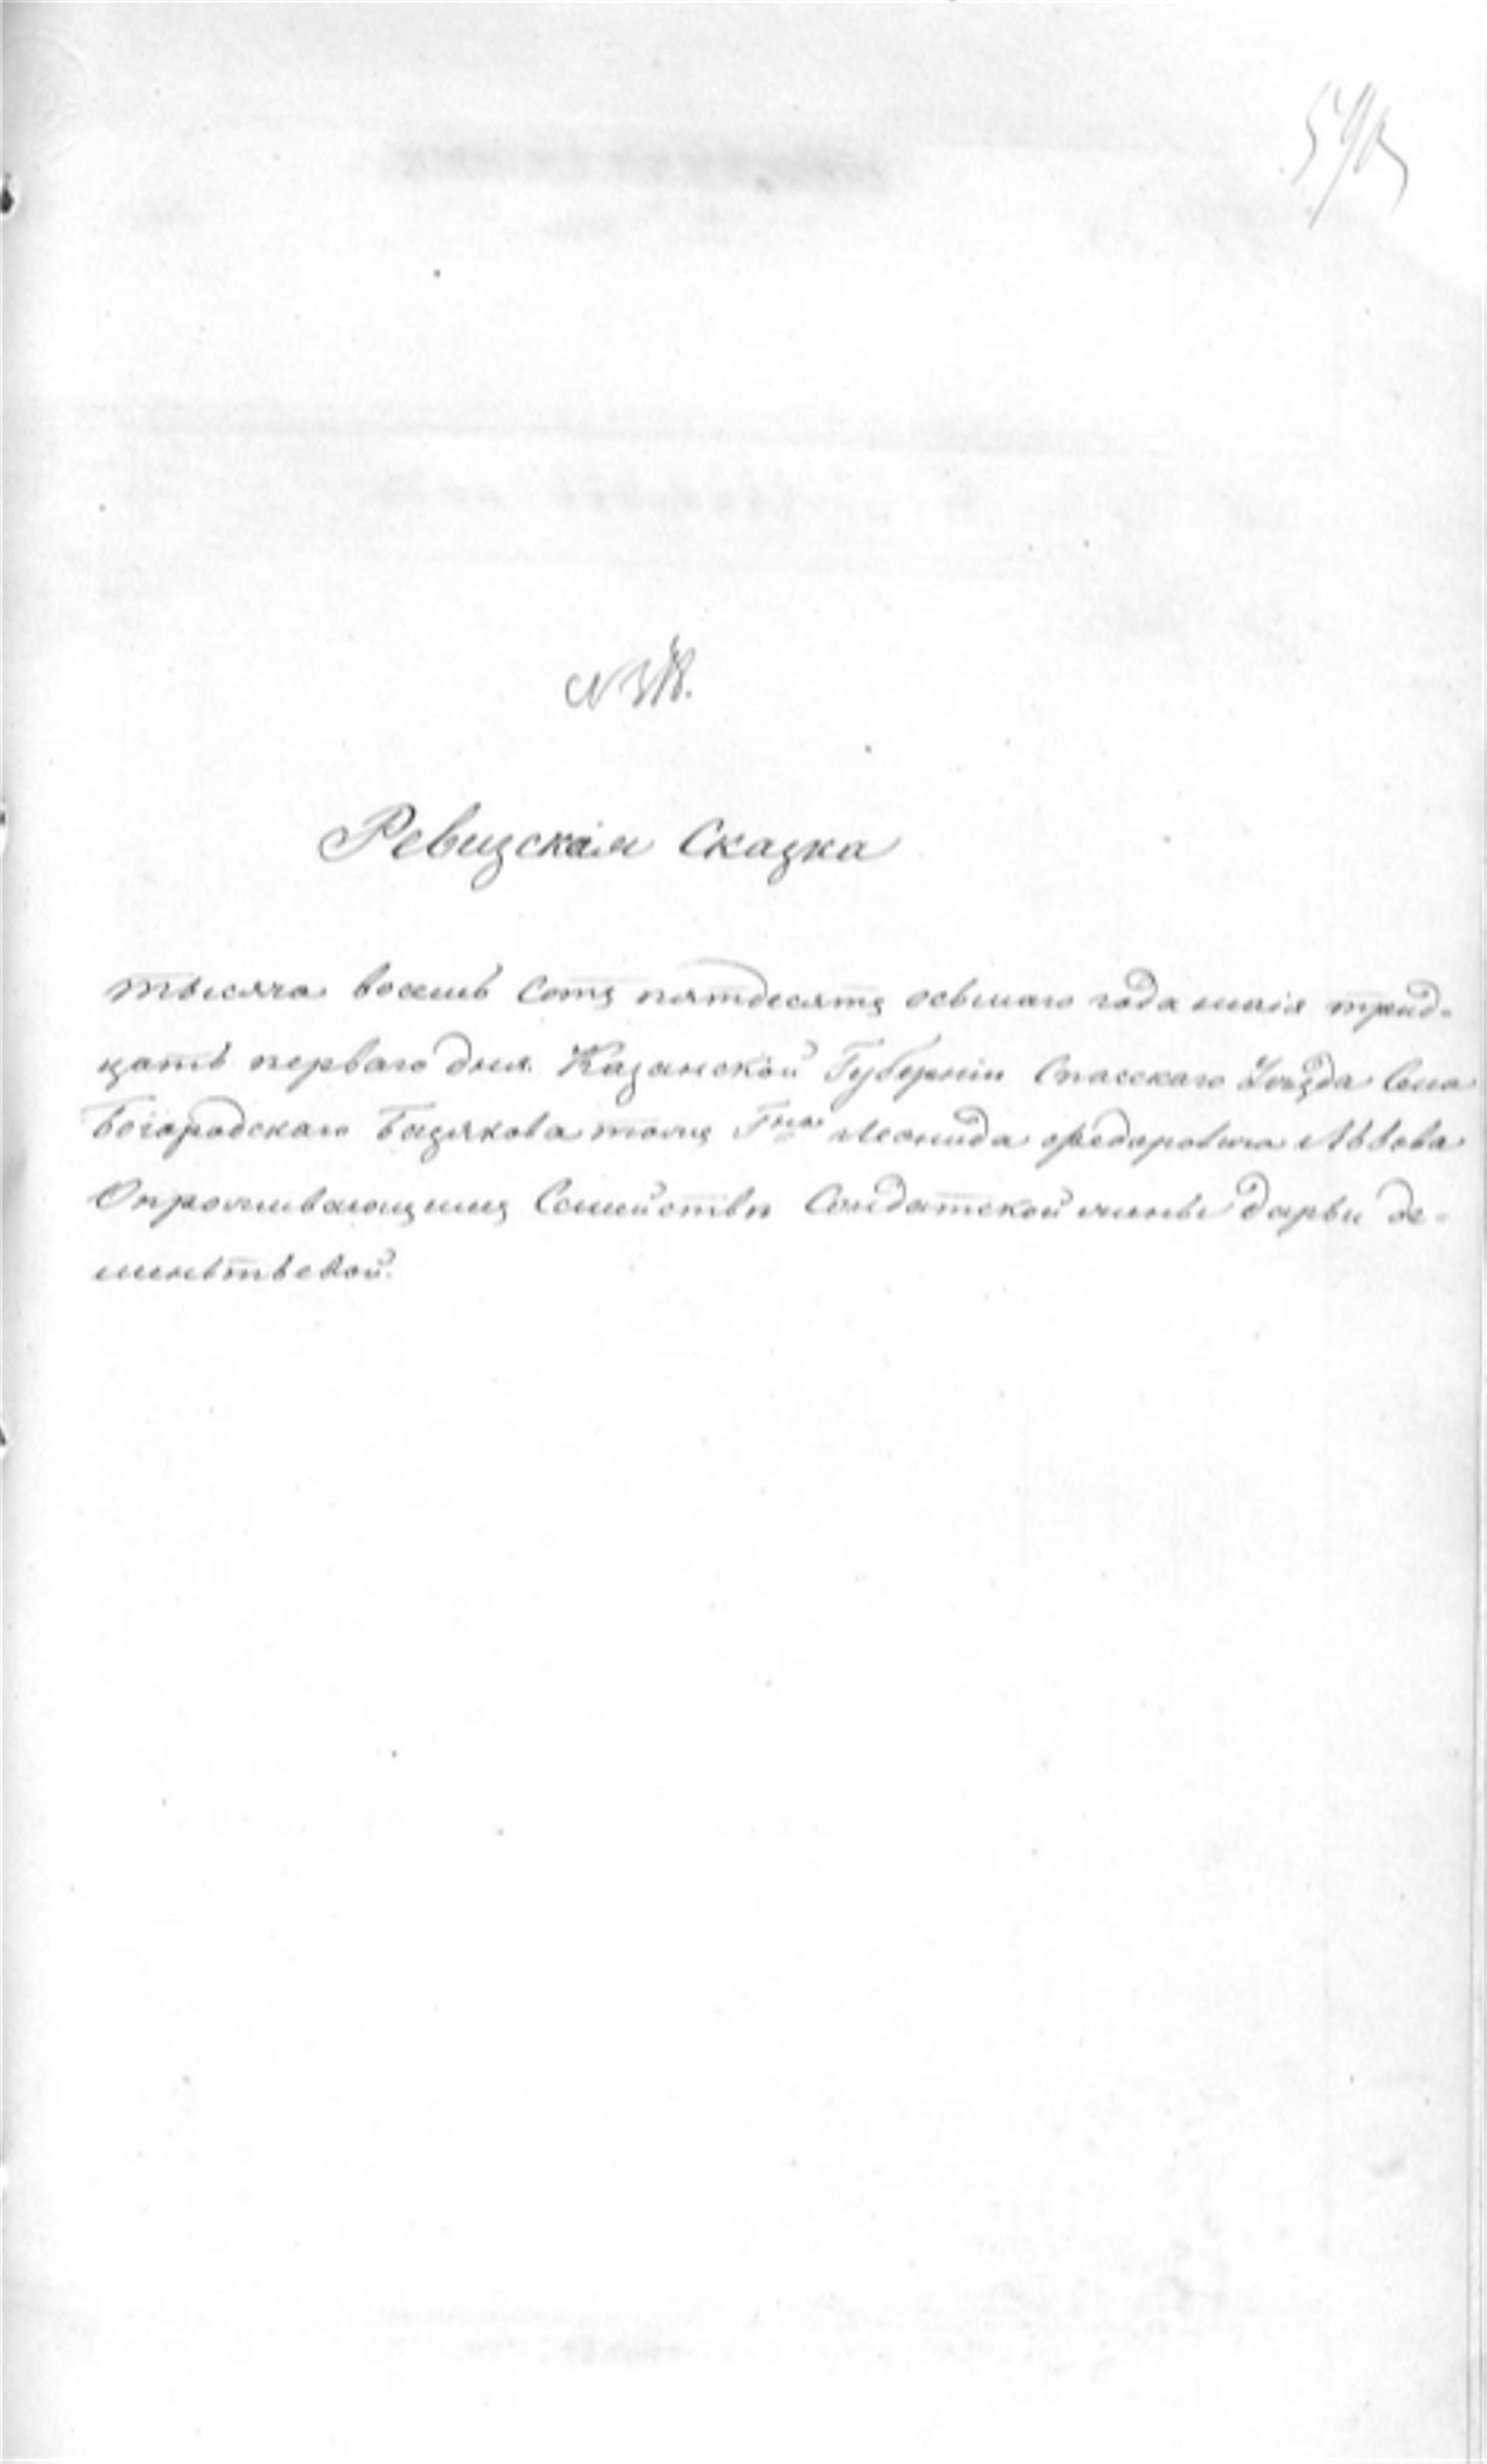 Ревизская Сказка
тысяча восемь сотъ пятдесятъ осьмаго года маія трид-
цать перваго дня. Казанской Губерніи Спасскаго Уѣзда Села
Богородскаго Бездякова тожъ Гна Леонида Федоровича Львова
О проживающимъ Семействѣ Солдатской жины Дарьи Де-
меньтьевой.